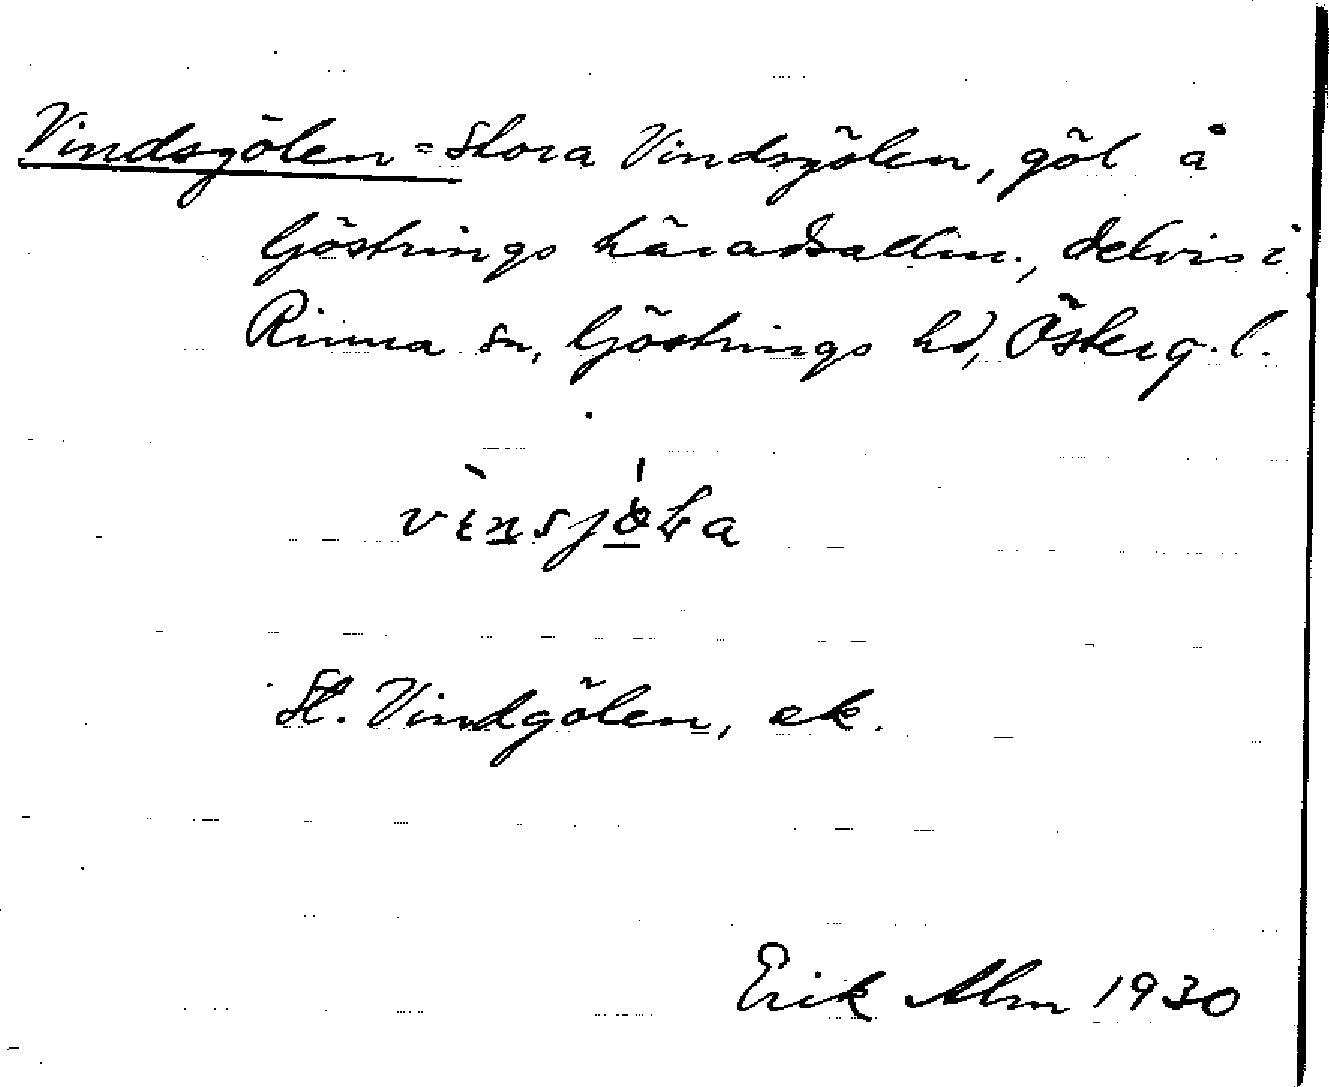 Vindsgölen = Stora Vindsgölen, göl å
Göstrings häradsallm., delvis i
Rinna sn, Göstrings hd, Österg. l.
St. Vindgölen, ek.
Erik Alm 1930